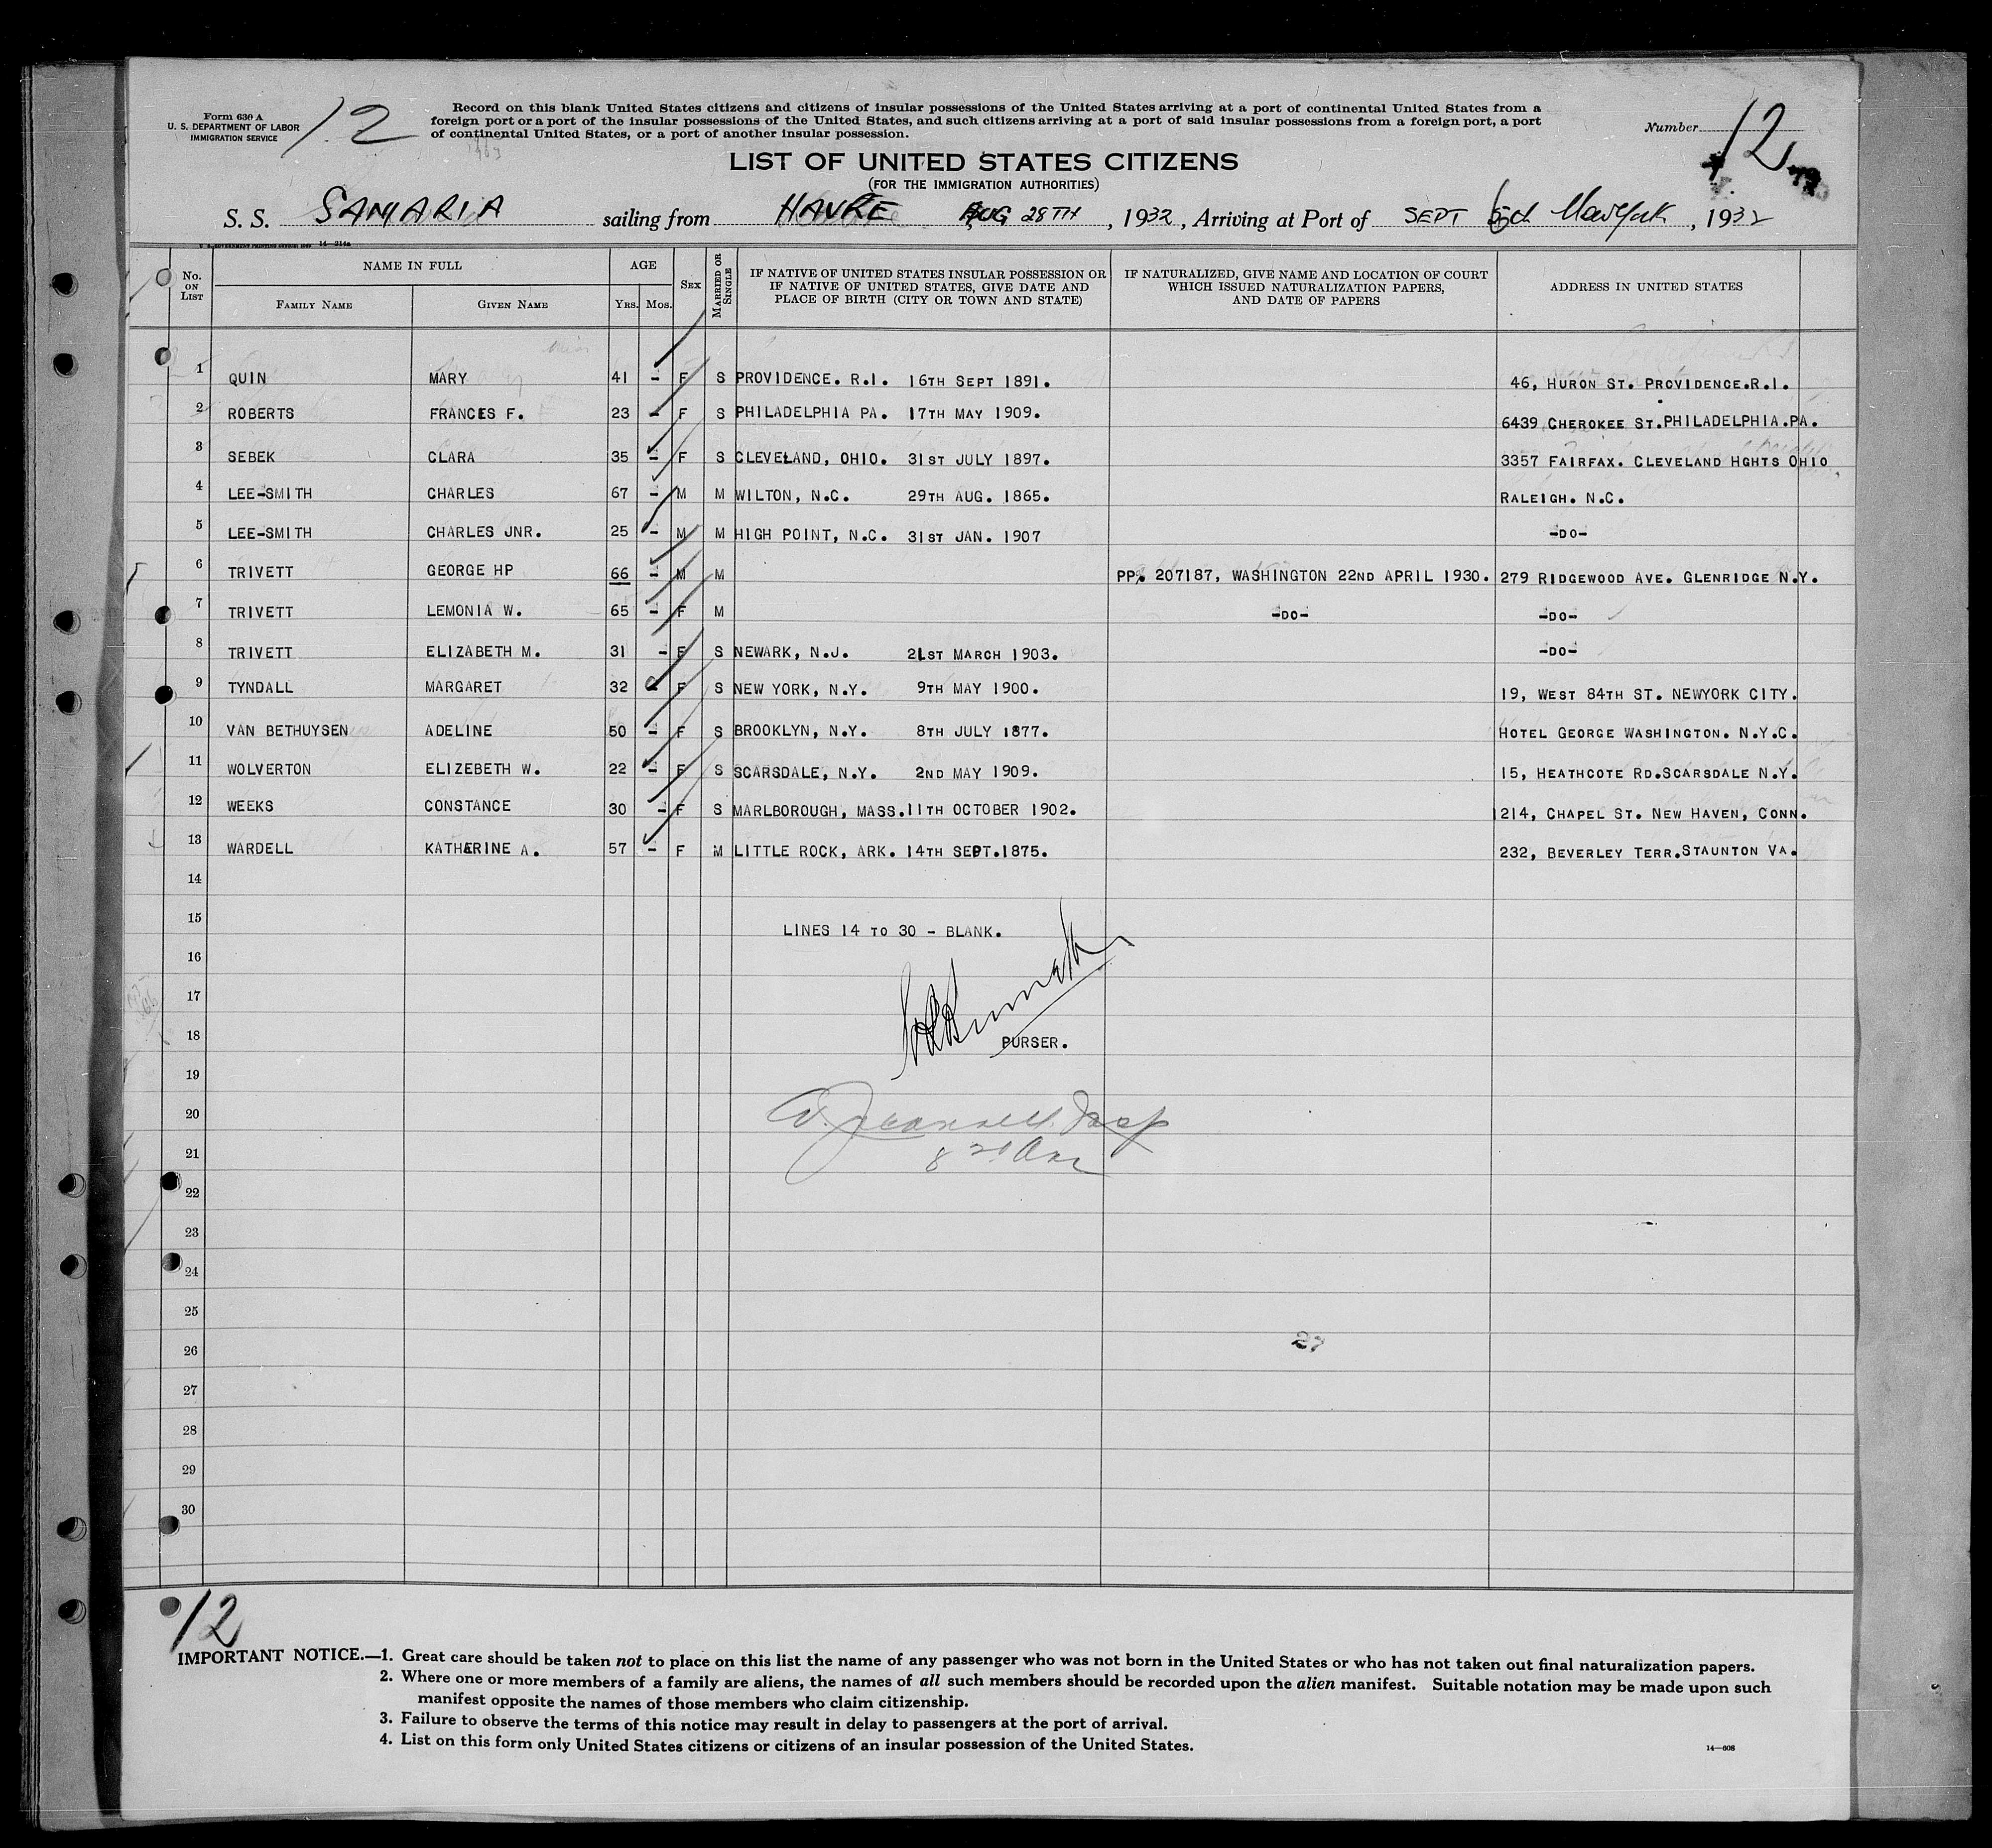 Form 630 A
U. S. DEPARTMENT OF LABOR
IMMIGRATION SERVICE
12
Record on this blank United States citizens and citizens of insular possessions of the United States arriving at a port of continental United States from a
foreign port or a port of the insular possessions of the United States, and such citizens arriving at a port of said insular possessions from a foreign port, a port
of continental United States, or a port of another insular possession.
Number 12
LIST OF UNITED STATES CITIZENS
(FOR THE IMMIGRATION AUTHORITIES)
S. S. SAMARIA sailing from HAVRE AUG 28TH, 1932, Arriving at Port of SEPT New York, 1932
No. on List NAME IN FULL AGE Sex Married or Single IF NATIVE OF UNITED STATES INSULAR POSSESSION OR IF NATIVE OF UNITED STATES, GIVE DATE AND PLACE OF BIRTH (CITY OR TOWN AND STATE) IF NATURALIZED, GIVE NAME AND LOCATION OF COURT WHICH ISSUED NATURALIZATION PAPERS, AND DATE OF PAPERS ADDRESS IN UNITED STATES
Family Name Given Name Yrs. Mos.
1 QUIN MARY 41 - F S PROVIDENCE. R.I. 16TH SEPT 1891. 46, HURON ST. PROVIDENCE.R.I.
2 ROBERTS FRANCES F. 23 - F S PHILADELPHIA PA. 17TH MAY 1909. 6439 CHEROKEE ST.PHILADELPHIA.PA.
3 SEBEK CLARA 35 - F S CLEVELAND, OHIO. 31ST JULY 1897. 3357 FAIRFAX. CLEVELAND HGHTS OHIO
4 LEE-SMITH CHARLES 67 - M M WILTON, N.C. 29TH AUG. 1865. RALEIGH. N.C.
5 LEE-SMITH CHARLES JNR. 25 - M M HIGH POINT, N.C. 31ST JAN. 1907 -DO-
6 TRIVETT GEORGE HP 66 - M M PP. 207187, WASHINGTON 22ND APRIL 1930. 279 RIDGEWOOD AVE. GLENRIDGE N.Y.
7 TRIVETT LEMONIA W. 65 - F M -DO- -DO-
8 TRIVETT ELIZABETH M. 31 - F S NEWARK, N.J. 21ST MARCH 1903. -DO-
9 TYNDALL MARGARET 32 - F S NEW YORK, N.Y. 9TH MAY 1900. 19, WEST 84TH ST. NEWYORK CITY.
10 VAN BETHUYSEN ADELINE 50 - F S BROOKLYN, N.Y. 8TH JULY 1877. HOTEL GEORGE WASHINGTON. N.Y.C.
11 WOLVERTON ELIZEBETH W. 22 - F S SCARSDALE, N.Y. 2ND MAY 1909. 15, HEATHCOTE RD.SCARSDALE N.Y.
12 WEEKS CONSTANCE 30 - F S MARLBOROUGH, MASS.11TH OCTOBER 1902. 1214, CHAPEL ST. NEW HAVEN, CONN.
13 WARDELL KATHERINE A. 57 - F M LITTLE ROCK, ARK. 14TH SEPT.1875. 232, BEVERLEY TERR.STAUNTON VA.
14
15 LINES 14 TO 30 - BLANK.
16
17
18 PURSER.
19
20
21
22
23
24
25
26 27
27
28
29
30
12
IMPORTANT NOTICE.—1. Great care should be taken not to place on this list the name of any passenger who was not born in the United States or who has not taken out final naturalization papers.
2. Where one or more members of a family are aliens, the names of all such members should be recorded upon the alien manifest. Suitable notation may be made upon such
manifest opposite the names of those members who claim citizenship.
3. Failure to observe the terms of this notice may result in delay to passengers at the port of arrival.
4. List on this form only United States citizens or citizens of an insular possession of the United States.
14—608